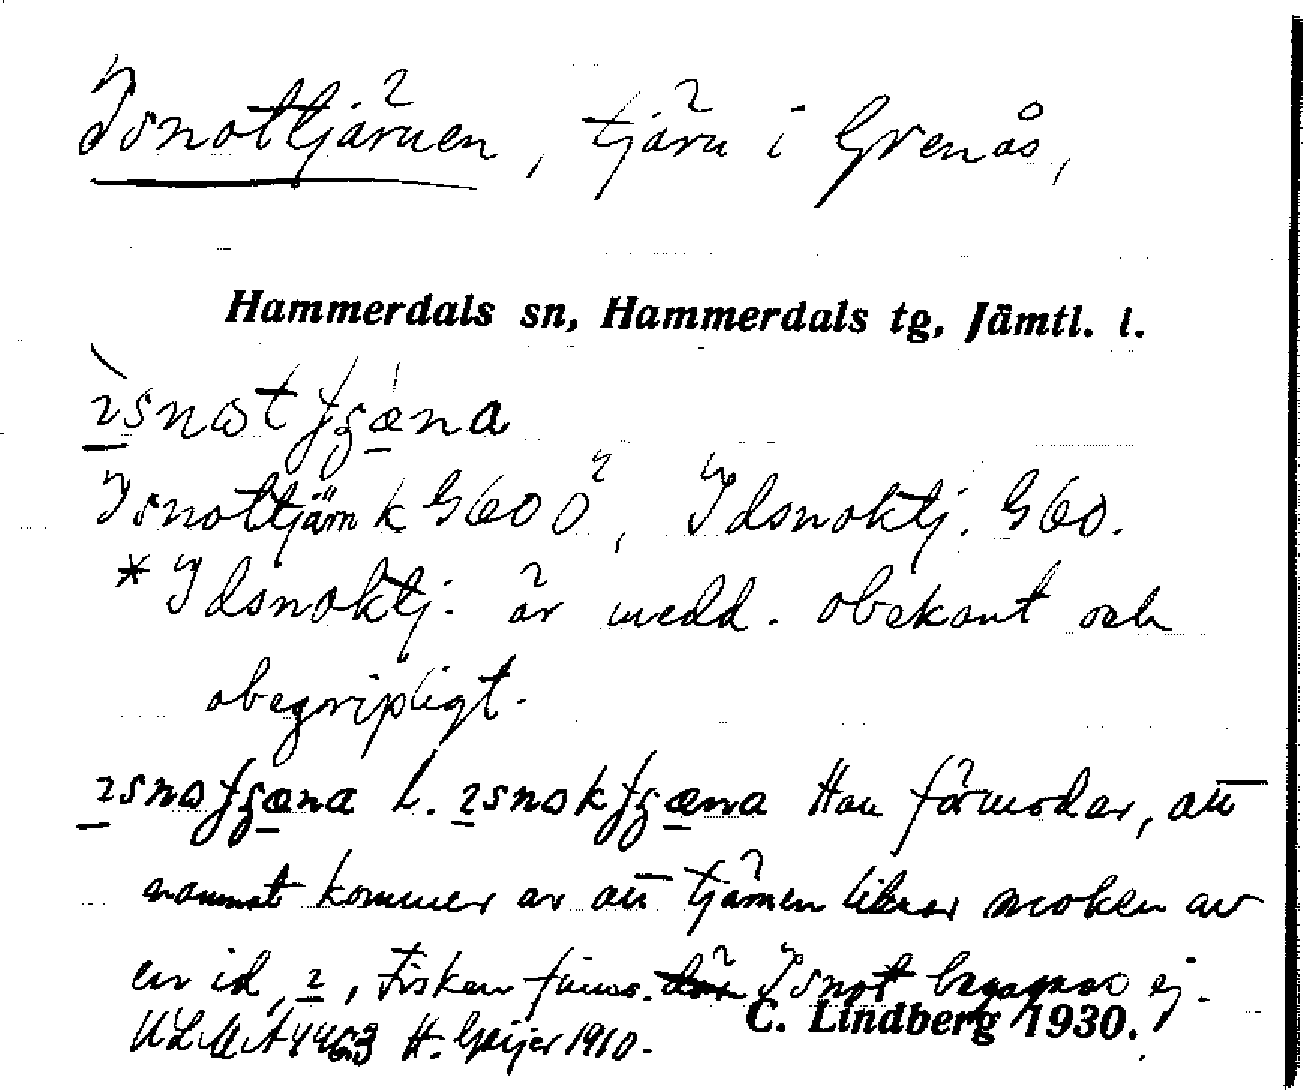 Isnottjärnen, tjärn i Grenås,
Hammerdals sn, Hammerdals tg, Jämtl. l.
Isnottjärn k G60Ö, Idsnoktj. G60.
* Idsnoktj. är medd. obekant och
obegripligt.
l. Han förmodar, att
namnet kommer av att tjärnen liknar snoken av
en id, Fisken finns. där Isnot begagnas ej.
C. Lindberg 1930.
ULMA 4463 H. Geijer 1910.